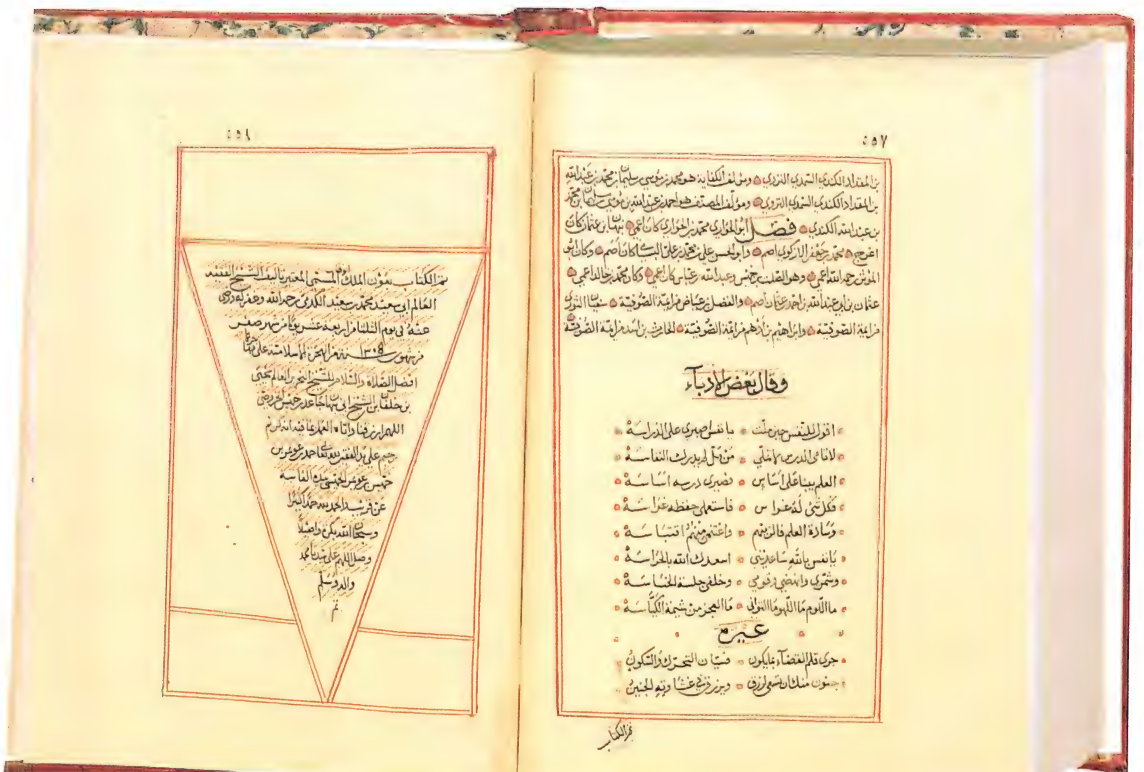 ٤٥٧
بن المقداد الكندي السمدي النزوي ومؤلف الكفاية هو محمد بن موسى بن سليمان بن محمد بن عبدالله
بن المقداد الكندي السمدي النزوي ومؤلف المصنف هو احمد بن عبدالله بن موسى بن سليمان بن محمد
بن عبدالله الكندي فصل ابو الحواري محمد بن الحواري كان اعمى نبهان بن عثمان كان
اعرج محمد بن جعفر الازكوي اصم وابو الحسن علي بن محمد بن علي البسياني كان اصم وكان ابو
المؤثر رحمه الله اعمى وهو الصلت بن خميس وعبدالله بن عباس كان اعمى وكان محمد بن خالد اعمى
عثمان بن ابي عبدالله بن احمد عثمان اصم والفضل بن عياض من ايمة الصوفية سفيان الثوري
من ايمة الصوفية وابراهيم بن ادهم من ايمة الصوفية الحارث بن اسد من ايمة الصوفية
وقال بعض الادباء
اقول للنفس حين ملت يا نفس اصبري على الدراسة
لا تسامي الدرس من مل لم يدرك النفاسة
العلم يبنا على اساس فصيري درسه اساسه
فكل شئ له غراس فاستعملي حفظه غراسه
وسادة العلم فالزميهم واغتنمي منهم اقتباسه
يا نفس بالله ساعديني اسعدك الله بالحراسة
وشمري وانهضي وقومي وخلفي جلسة الخساسة
ما اللوم ما اللهو ما التواني ما العجز من شيمة الكياسة
غيره
جرى قلم القضاء بما يكون فسيان التحرك والسكون
جنون منك ان تسعى لرزق ويرزق في غشاوته الجنين
تم الكتاب
تم الكتاب بعون الملك المسمى المعتبر تاليف الشيخ الفقيه
العالم ابي سعيد محمد بن سعيد الكدمي رحمه الله وغفر له ورضي
عنه في يوم الثلثا من اربعة عشر يوما من شهر صفر
من شهور سنة من الهجرة الاسلامية على
افضل الصلاة والسلام للشيخ العالم يحيى
بن خلفان بن الشيخ ابي نبهان جاعد بن خميس الخروصي
اللهم ارزقنا واياه العلم بما فيه انه كريم
رحيم على يد الفقير لله
خميس بيده الفانية
عن قريب والحمد لله حمدا كثيرا
وسبحان الله بكرة واصيلا
وصل اللهم على سيدنا محمد
واله وسلم
تم